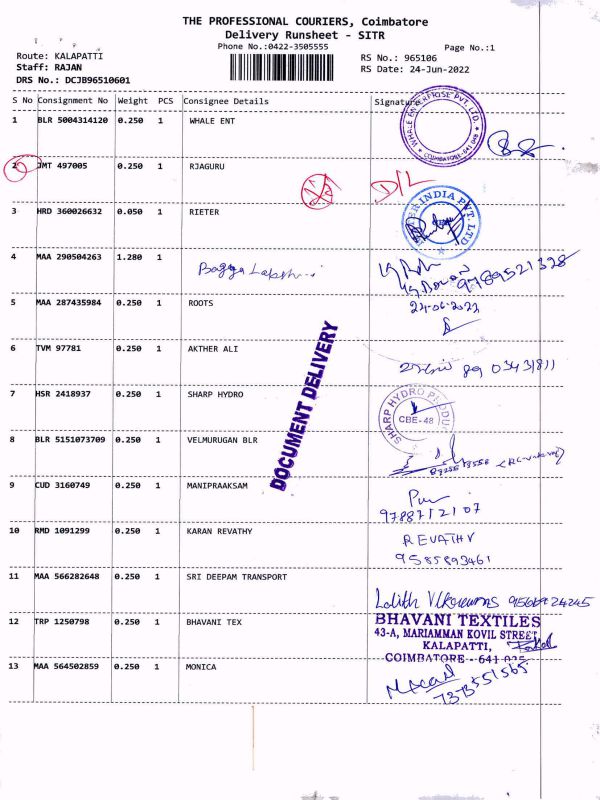 THE PROFESSIONAL COURIERS, Coimbatore
Delivery Runsheet - SITR
Phone No.:0422-3505555
Page No.:1
Route: KALAPATTI
Staff: RAJAN
DRS No.: DCJB96510601
RS No.: 965106
RS Date: 24-Jun-2022
S No Consignment No Weight PCS Consignee Details Signature
1 BLR 5004314120 0.250 1 WHALE ENT
WHALE ENTERPRISE PVT. LTD.
COIMBATORE-641 048
2 JMT 497005 0.250 1 RJAGURU D/L
3 HRD 360026632 0.050 1 RIETER
INDIA PVT. LTD
4 MAA 290504263 1.280 1
9789521328
5 MAA 287435984 0.250 1 ROOTS
24-06-2022
6 TVM 97781 0.250 1 AKTHER ALI
7 HSR 2418937 0.250 1 SHARP HYDRO
SHARP HYDRO
CBE-48
DOCUMENT DELIVERY
8 BLR 5151073709 0.250 1 VELMURUGAN BLR
9 CUD 3160749 0.250 1 MANIPRAAKSAM
10 RMD 1091299 0.250 1 KARAN REVATHY
REVATHY
9585893461
11 MAA 566282648 0.250 1 SRI DEEPAM TRANSPORT
Lalith
12 TRP 1250798 0.250 1 BHAVANI TEX
BHAVANI TEXTILES
43-A, MARIAMMAN KOVIL STREET,
KALAPATTI,
COIMBATORE - 641 035
13 MAA 564502859 0.250 1 MONICA